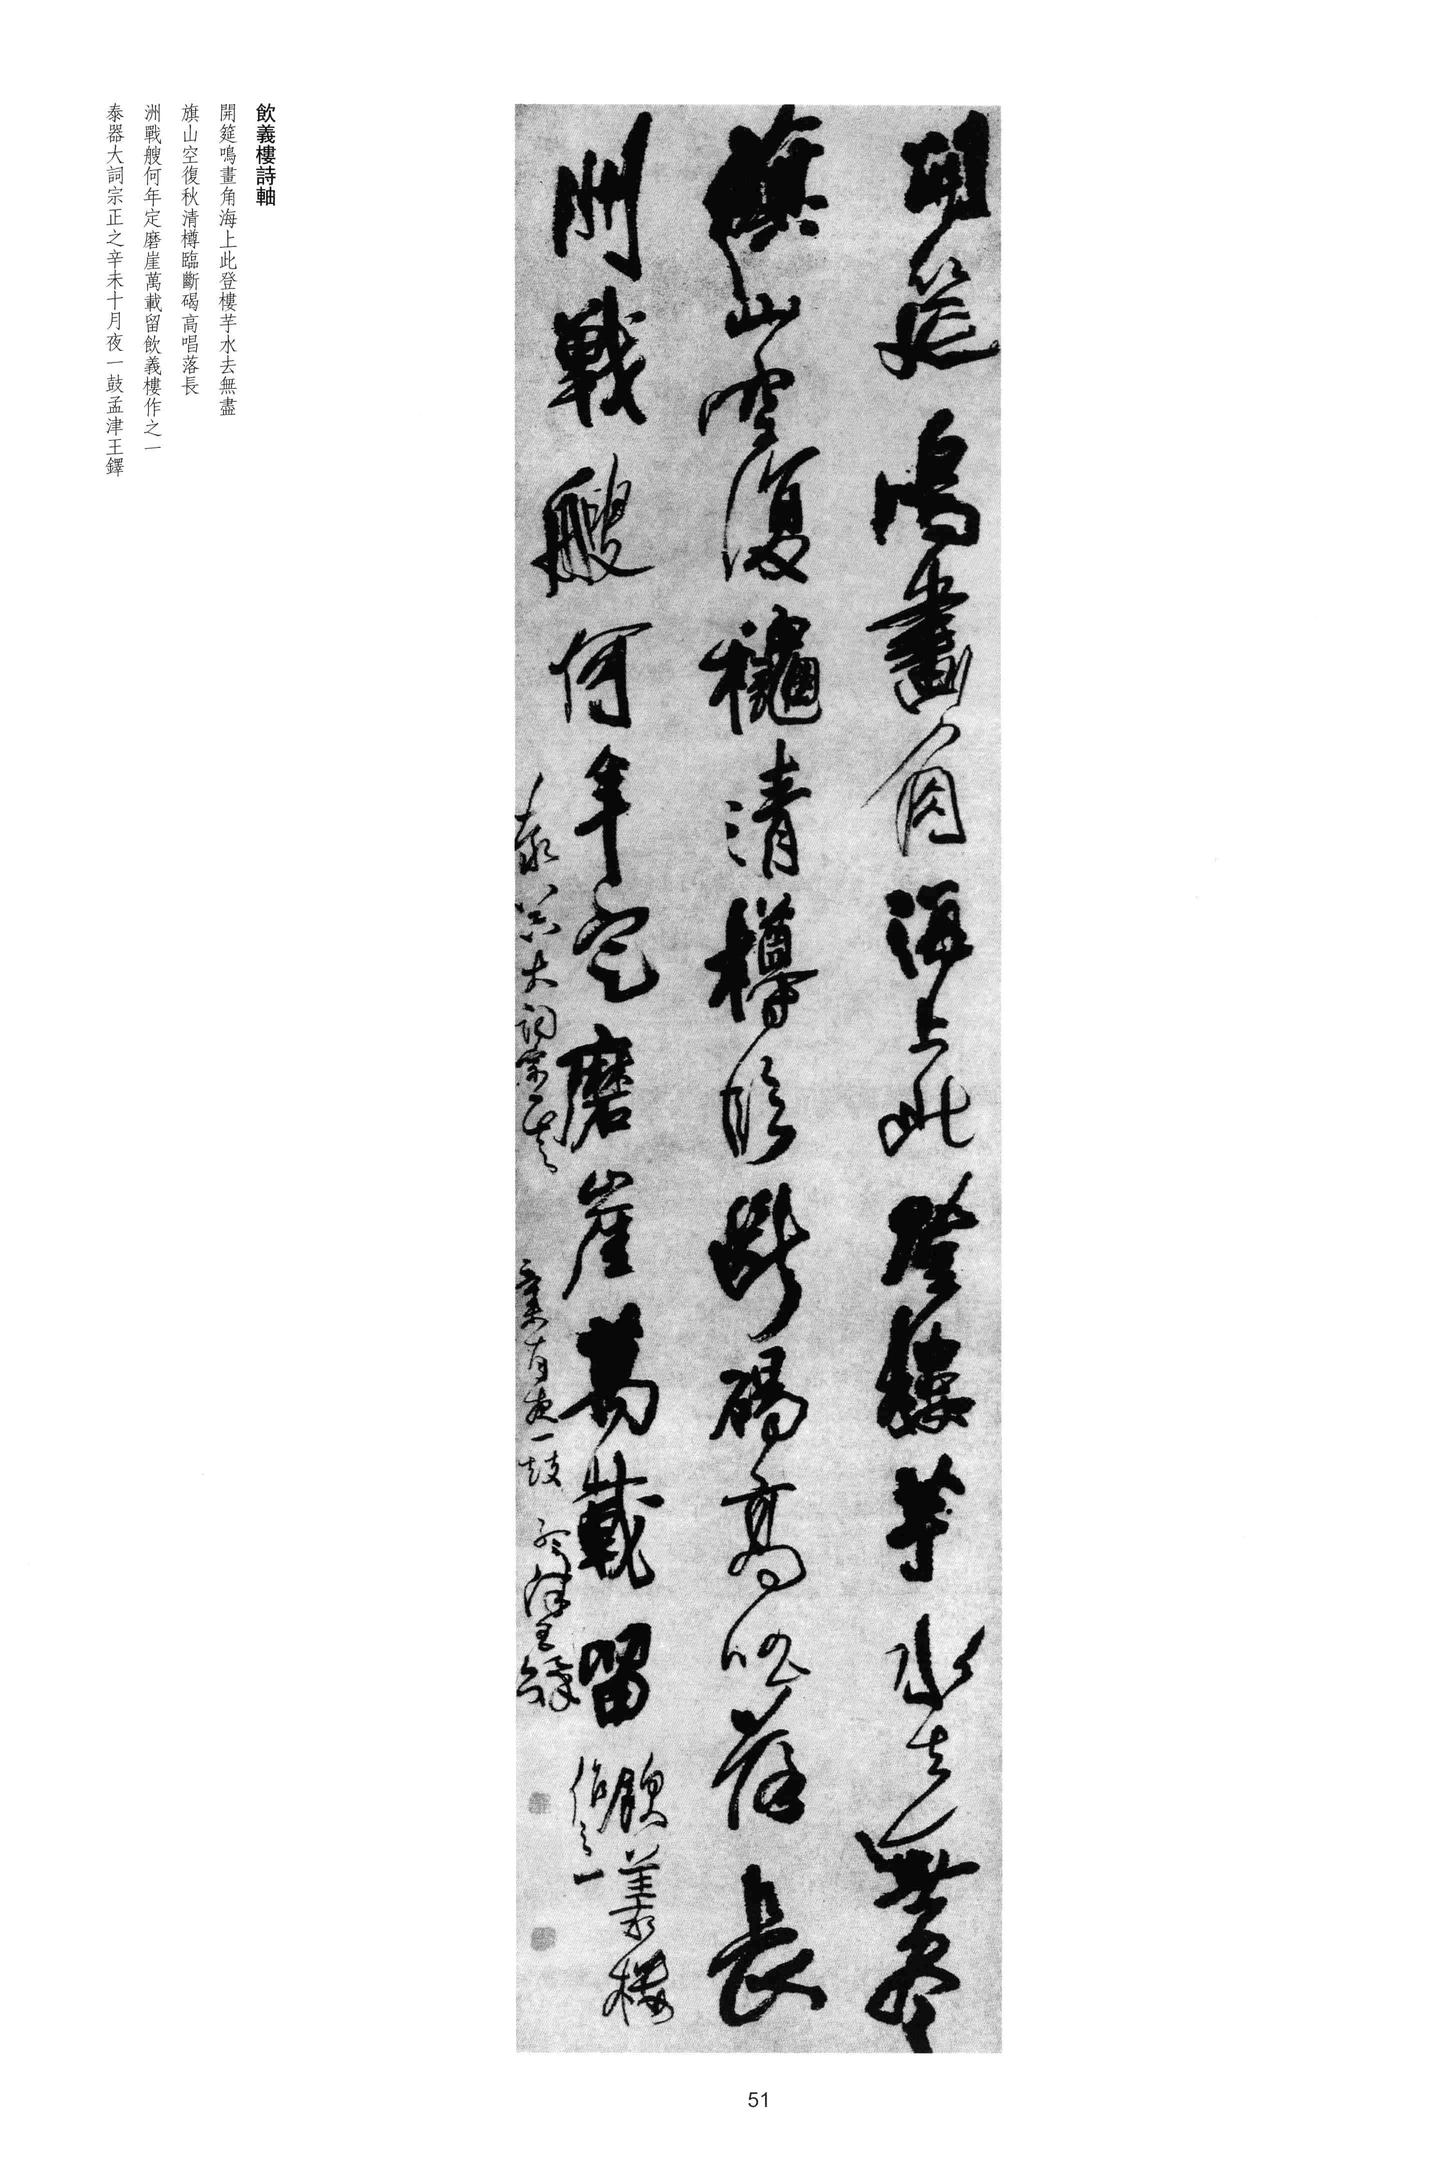 開筵鳴畫角海上此登樓芋水去無盡
旗山空復穐清樽臨斷碣高唱落長
洲戰艘何年定磨崖萬載留
飲義樓
作之一
泰器大詞宗正之
辛未十月夜一鼓孟津王鐸
飲義樓詩軸
開筵鳴畫角海上此登樓芋水去無盡
旗山空復秋清樽臨斷碣高唱落長
洲戰艘何年定磨崖萬載留飲義樓作之一
泰器大詞宗正之辛未十月夜一鼓孟津王鐸
51